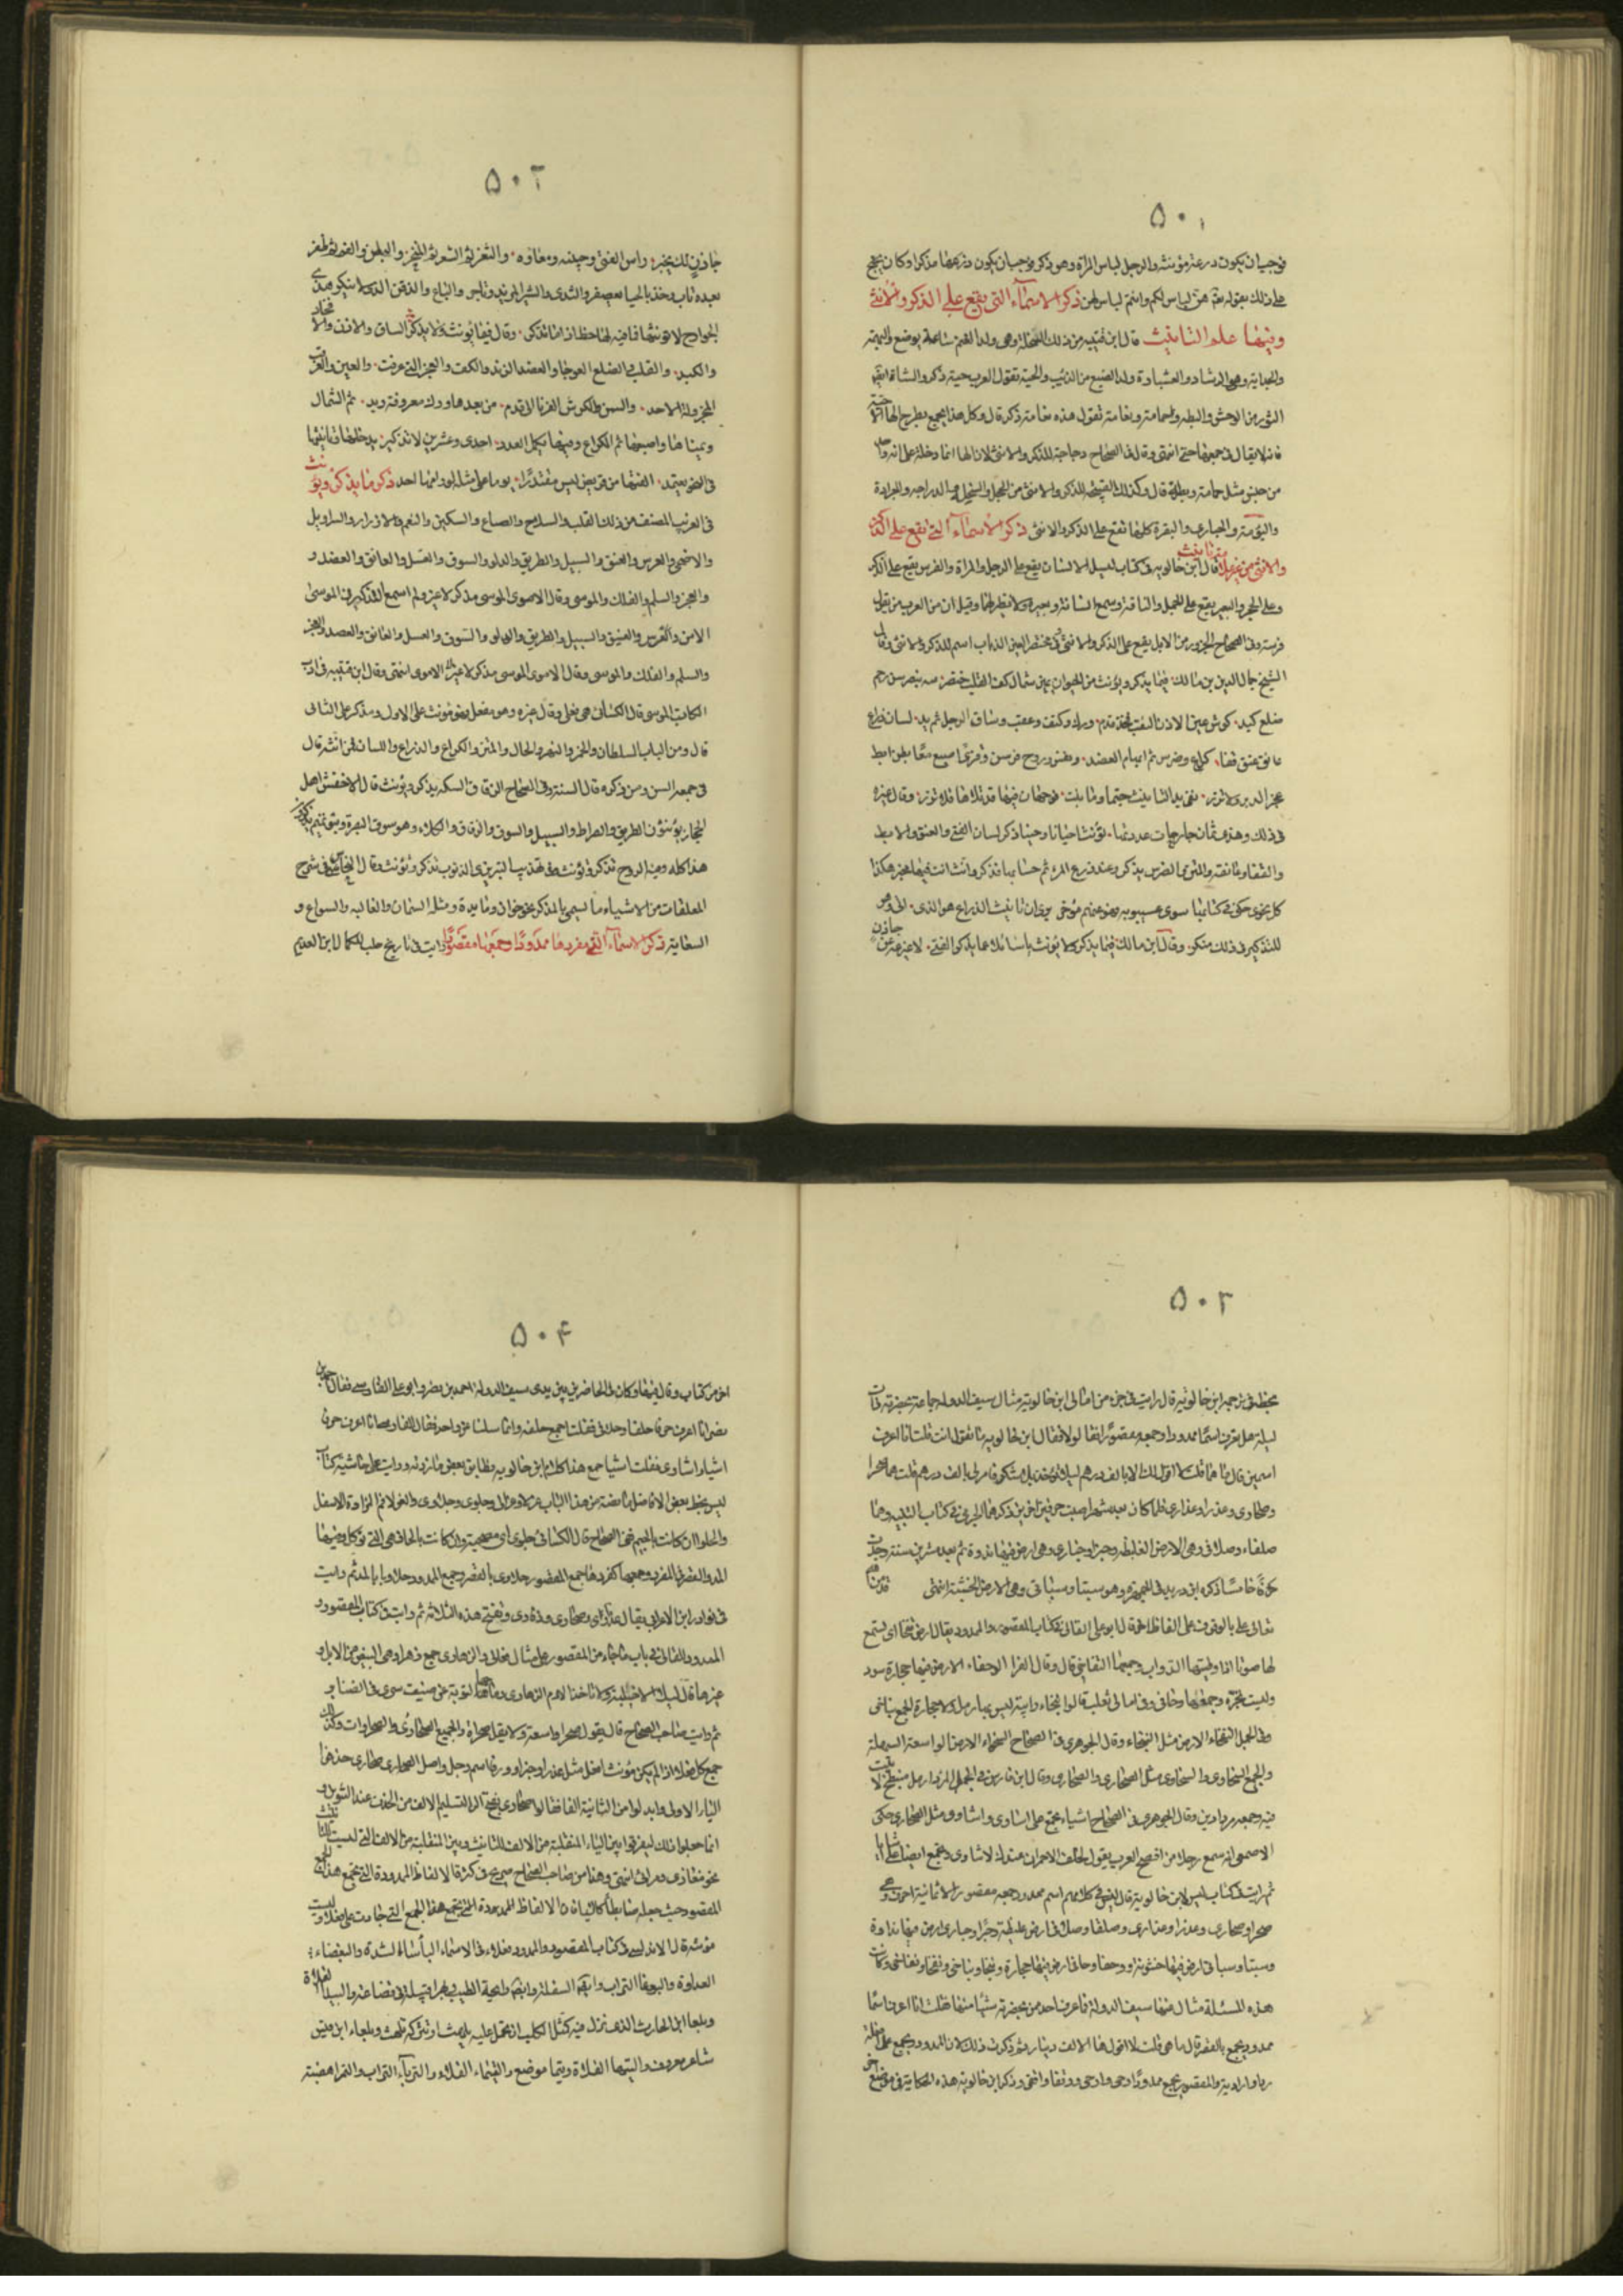 ٥٠١
فوجب ان يكون درعه مؤنثه والرجل لباس المراة وهو ذكر فوجب ان يكون درعها مذكرا وكان يحتج
على ذلك بقوله هن لباس لكم وانتم لباس لهن ذكر الاسماء التي تقع على الذكر والانثى
وفيها علم التانيث قال ابن قتيبه من ذلك السخله وهى ولد الغنم ساعة يوضع والبهمه
والجداية وهو الرشا والعسبارة ولد الضبع من الذئب والحية تقول العرب حية ذكر والشاة ايضا
الثور من الوحش والبطه وحمامة ونعامة تقول هذه نعامة ذكر قال وكل هذا يجمع بطرح الها الا حية
فانه لا يقال في جمعها حي انتهى وقال في الصحاح دجاجة للذكر والانثى لان الها انما دخلته على انه واحد
من جنس مثل حمامة وبطة قال وكذلك القبجه للذكر والانثى من الحجل والنحل والدراجه والجرادة
والبومة والحبارى والبقرة كلها تقع على الذكر والانثى ذكر الاسماء التي تقع على الذكر
والانثى من غير علامة تانيث قال ابن خالويه في كتاب ليس الانسان يقع على الرجل والمراة والفرس يقع على الذكر
وعلى الحجر والبعير يقع على الجمل والناقة وسمع انسانة وبعيرة ولا نظير لها وقيل ان من العرب من يقول
فرسة وفي الصحاح الجزور من الابل يقع على الذكر والانثى وفي مختصر العين الذباب اسم للذكر والانثى وقال
الشيخ جمال الدين بن مالك فيما يذكر ويؤنث من الحيوان يمين شمال كف القلب خنصر سه بنصر سن رحم
ضلع كبد كرش عين الاذن القتب فخذ قدم ورك وكتف وعقب وساق الرجل ثم يد لسان ذراع
عاتق عنق قفا كراع وضرس ثم ابهام العضد ونفس وروح فرسن وقرى اصبع معا بطن ابط
عجز الدبر لا تزد
في ذلك وهذى ثمان جارحات عددتها تؤنث احيانا وحينا تذكر لسان الفتى والعنق والابط
والقفا وعاتقه والمتن والضرس يذكر وعند ذراع المرء ثم حسابها فذكر وانث انت فيها مخير هكذا
كل نحوى حكى في كتابه سوى سيبويه فهو عنهم مؤخر يرى ان تانيث الذراع هو الذى اتى وهو
للتذكير في ذلك منكر وقال ابن مالك فيما يذكر ولا يؤنث يا سائلا عما يذكر الفتى لا غير عن
جاذق
٥٠٢
حاذق لك يخبر راس الفتى وجبينه ومعاؤه والثغر ثم الشعر ثم المنخر والبطن والفم ثم ظفر
بعده ناب وخذ بالحيا معصفر والثدى والشبر المزيد وناجر والباع والذقن الذى لا ينكر هذى
الجوارح لا تؤنثها فما فيه لها حظ اذا ما تذكر وقال فيما يؤنث ولا يذكر الساق والاذن والافخاذ
والكبد والقلب الضلع العوجا والعضد والزند والكف والعجز التي عرفت والعين والعقب
المجزولة الاحد والسن والكرش الغرثا الاقدم من بعدها ورك معروفة ويد ثم الشمال
ويمناها واصبعها ثم الكراع وفيها يكمل العدد احدى وعشرين لا تذكير يدخلها
ذكر ما يذكر ويؤنث
في الغريب المصنف من ذلك القليب والسلاح والصاع والسكين والنعم والازار والسراويل
والاضحى والعرس والعنق والسبيل والطريق والدلو والسوق والعسل والعاتق والعضد و
والعجز والسلم والفلك والموسى وقال الاموى الموسى مذكر لا غير ولم اسمع التذكير في الموسى
الا من والعرس والعنق والسبيل والطريق والدلو والسوق والعسل والعاتق والعضد والعجز
والسلم والفلك والموسى وقال الاموى الموسى مذكر لا غير الاموى انتهى وقال ابن قتيبه في ادب
الكاتب الموسى قال الكسائي هى فعلى وقال غيره وهو مفعل فهو مؤنث على الاول ومذكر على الثانى
قال ومن الباب السلطان والخمر والنهر والحال والمتن والكراع والذراع واللسان فمن انثه قال
في جمعه السن ومن ذكره قال السنة وفي الصحاح الزقاق السكه يذكر ويؤنث قال الاخفش اهل
الحجاز يؤنثون الطريق والصراط والسبيل والسوق والزقاق والكلاء وهو سوق البصرة وبنو تميم يذكرون
هذا كله وفيه الروح تذكر وتؤنث وفي تهذيب التبريزى الذنوب تذكر وتؤنث وقال النحاس في شرح
المعلقات من الاشياء ما يسمى بالمذكر نحو خوان ومايدة ومثله السنان والعاليه والسواع و
السقاية ذكر الاسماء التي مفردها ممدودا وجمعها مقصورا رايت في تاريخ حلب للكمال ابن العديم
٥٠٣
بخطه في ترجمة ابن خالويه قال رايت في جزء من امالى ابن خالويه مثال سيف الدولة جماعة بحضرته ذات
ليلة هل تعرف اسما ممدودا وجمعه مقصورا فقالوا لا فقال ابن خالويه ما تقول انت قلت انا اعرف
اسمين قال ما هما قلت لا اقول لك الا بالف درهم قلت هما صحرا
وصحارى وعذراء وعذارى فلما كان بعد شهر اصبت حرفين اخرين ذكرهما الجرمى في كتاب التنبيه وهما
صلفاء وصلافى وهى الارض الغليظه وخبراء وخبارى وهى ارض فيها ندوة ثم بعد عشرين سنة وجدت
حرفا خامسا ذكره ابن دريد في الجمهرة وهو سبتا وسباتى وهى الارض الخشنة انتهى قد من الله
تعالى على بالوقوف على الفاظ اخر قال ابو على القالى في كتاب المقصور والممدود يقال ارض نفخا اى تسمع
لها صوتا اذا وطيتها الدواب وجمعها النفاخى قال وقال الفرا الوحفاء الارض فيها حجارة سود
وليست بحرة وجمعها وحافى وفي امالى ثعلب قالوا النفخاء رابية ليس بها رمل ولا حجارة الجمع نباخى
وفي المجمل النبخاء الارض مثل النفخاء وقال الجوهرى في الصحاح السخواء الارض الواسعة السهلة
والجمع السخاوى والسخاوى مثل الصحارى والصحارى وقال ابن فارس في المجمل المرداء رمل منبطح لا نبت
فيه وجمعه مرادى وقال الجوهرى في الصحاح اشياء يجمع على اشاوى واشاوى مثل الصحارى حكى
الاصمعى انه سمع رجلا من افصح العرب يقول لخلف الاحمر ان عندك لاشاوى ويجمع ايضا على اشايا
ثم رايت في كتاب ليس لابن خالويه قال ليس في كلامهم اسم ممدود جمعه مقصور الا ثمانية احرف وهى
صحرا وصحارى وعذرا وعذارى وصلفا وصلافى ارض غليظة وخبرا وخبارى ارض فيها نداوة
وسبتا وسباتى ارض فيها خشونة ووحفا ووحافى ارض فيها حجارة ونبخا ونباخى ونفخا ونفاخى وكانت
هذه المسئلة سال عنها سيف الدولة فما عرف احد من بحضرته شيا منها فقلت انا اعرف اسما
ممدود يجمع بالقصر قال ما هى قلت لا اقولها الا بالف دينار ثم ذكرت ذلك لان الممدود يجمع على افعلة
رداء واردية والمقصور يجمع ممدودا رحى وارحى وقفا واقفى وذكر ابن خالويه هذه الحكاية في موضع اخر
٥٠٤
اخر من كتاب وقال فيها وكان في الحاضرين بين يدى سيف الدولة احمد بن نصر وابو على الفارسى فقال احمد بن
نصر انا اعرف حرفا حلفا وحلافى فقلت اجمع حلفه وانما سئلنا عن واحد فقال الفارسى انا اعرف حرف
اشياء اشاوى فقلت اشيا جمع هذا كلام ابن خالويه فطابق بعض ما زدته ورايت على حاشية كتاب
ليس بخط بعض الافاضل ما نصه من هذا الباب عزلا وعزالى وجلوى وجلاوى والعزلا فم المزادة الاسفل
والجلوا ان كانت بالجيم ففى الصحاح قال الكسائى جلوى اى مصحية وان كانت بالحا فهى التى تؤكل وفيها
المد والقصر في المفرد وجمعها كمفردها جمع المقصور حلاوى بالقصر وجمع الممدود حلاوى بالمد ثم رايت
في نوادر ابن الاعرابى يقال عذارى وصحارى وذفارى وتفتح هذه الثلاثة ثم رايت في كتاب المقصور و
الممدود للقالى في باب ما جاء من المقصور على مثال فعالى والزهارى جمع زهراء وهى البيض من الابل و
غيرها قال ليلى الاخيلية ولا تاخذ الادم الزهارى رماحها لتوبة عن صنيف سرى في الصنابر
ثم رايت صاحب الصحاح قال يقول صحرا واسعة ولا يقل صحراة والجمع الصحارى والصحراوات وكذلك
جمع كل فعلاء اذا لم يكن مؤنث افعل مثل عذراء وخبراء وورقاء اسم رجل واصل الصحارى صحارى حذفوا
الياء الاولى وابدلوا من الثانية الفا فقالوا صحارى بفتح الراء لتسلم الالف من الحذف عند التنوين و
انما فعلوا ذلك ليفرقوا بين الياء المنقلبة من الالف للتانيث وبين المنقلبة من الالف التى ليست للتانيث
نحو مغازى ومرامى انتهى وهذا من صاحب الصحاح صريح في كثرة الالفاظ الممدودة التى تجمع هذا الجمع
المقصور حيث جعله ضابطا كليا فان الالفاظ الممدودة التى تجمع هذا الجمع التى جاءت على فعلاء وليست
مؤنثة قال الاندلسى في كتاب المقصور والممدود فعلاء في الاسماء الباساء الشدة والبغضاء
العداوة والبوغا التراب وايضا السفلة وايضا رايحة الطيب وبهراء قبيلة في قضاعة والبيداء الفلاة
وبلعا ابن الحارث الذى نزل فيه كمثل الكلب ان تحمل عليه يلهث او تتركه يلهث وبلعاء ابن قيس
شاعر معروف والتيها الفلاة وتيما موضع والتيماء الفلاة والترباء التراب والثمراء هضبة